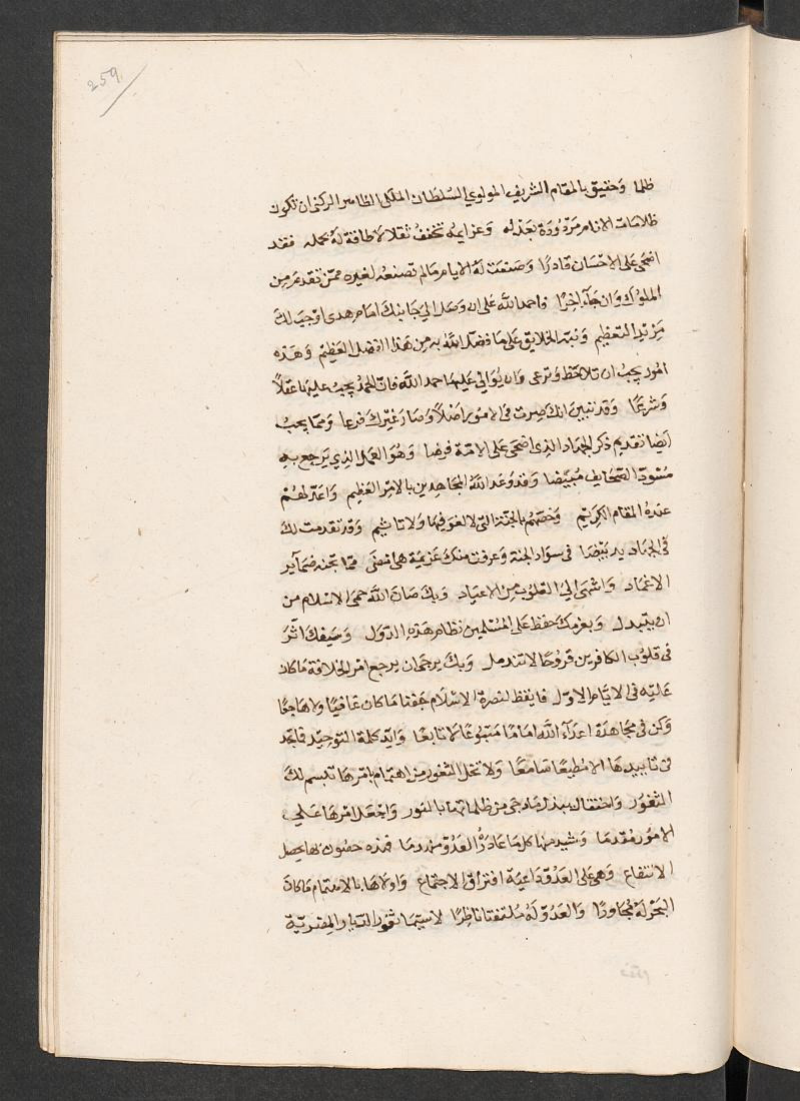 259
ظلما وحقيق بالمقام الشريف المولوي السلطان الملكي الظاهر الركني ان تكون
ظلامات الانام مردودة بعدله وعزايمه تخفف ثقلا لا طاقة له بحمله فقد
اضحى على الاحسان قادرا وصنعت له الايام مالم تصنعه لغيره ممن تقدم من
الملوك وان جاء اخرا فاحمد الله على ان وصل الي جانبك امام هدى اوجب لك
مزية التعظيم ونبه الخلايق على ما فضل الله به من هذا الفضل العظيم وهذه
امور يجب ان تلاحظ وترعى وان يوالي عليها حمد الله فان الحمد يجب عليها عقلا
وشرعا وقد تبين انك صرت في الامور اصلا وصار غيرك فرعا ومما يجب
ايضا تقديم ذكر الجهاد الذي اضحى على الامة فرضا وهو العمل الذي يرجع به
مسود الصحايف مبيضا وقد وعد الله المجاهدين بالاجر العظيم واعد لهم
عنده المقام الكريم وخصهم بالجنة التي لا لغو فيها ولا تاثيم وقد تقدمت لك
في الجهاد يد بيضا في سواد الجنة وعرفت منك عزيمة هي امضى مما تجنه ضماير
الاغماد واشهى الي القلوب من الاعياد وبك صان الله حمى الاسلام من
ان يتبدل وبعزمك حفظ على المسلمين نظام هذه الدول وسيفك اثر
في قلوب الكافرين قروحا لا تندمل وبك يرجى ان يرجع امر الخلافة ما كان
عليه في الايام الاول فايقظ لنصرة الاسلام جفنا ما كان غافيا ولا هاجعا
وكن في مجاهدة اعداء الله اماما متبوعا لا تابعا وايد كلمة التوحيد فما تجد
في تاييدها الا مطيعا سامعا ولا تخل الثغور من اهتمام بامرها تبسم لك
الثغور واحتفال يبدل ما دجى من ظلماتها بالنور واجعل امرها على
الامور مقدما وشيد منها كل ما غادره العدو مهدوما فهذه حصون بها يحصل
الانتفاع وهي على العدو داعية افتراق لا اجتماع واولاها بالاهتمام ما كان
البحر له مجاورا والعدو له ملتفتا ناظرا لا سيما ثغور الديار المصرية